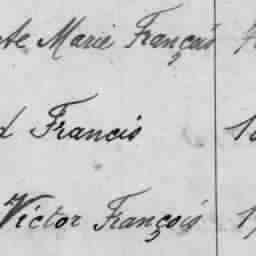 te Marie François
d Francis
Victor François